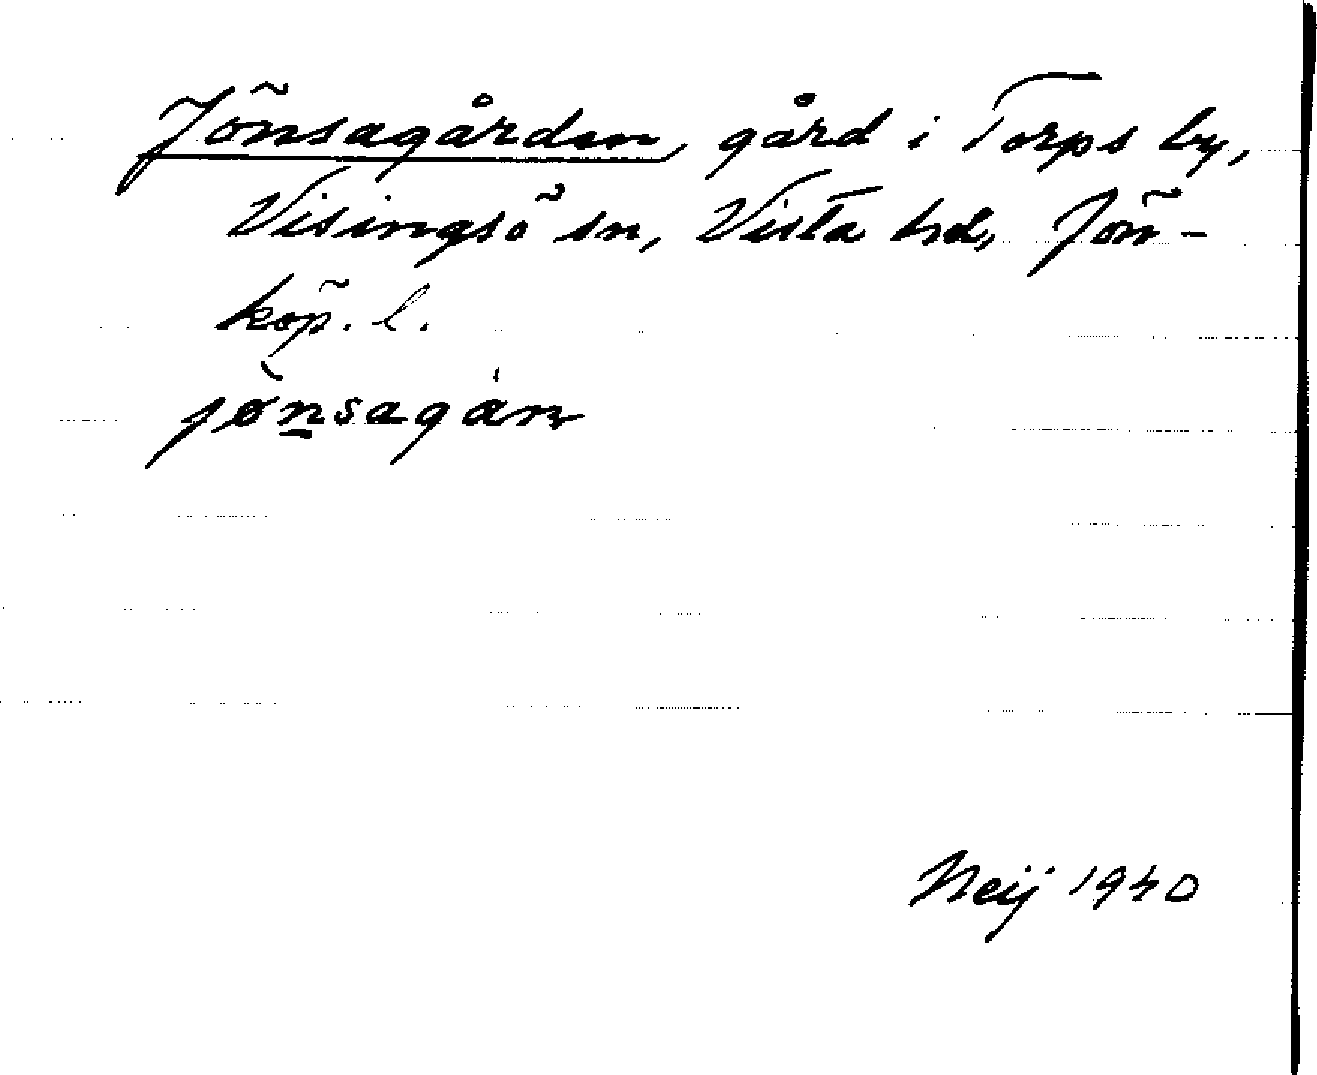 Jönsagården, gård i Torps by,
Visingsö sn, Vista hd, Jön-
köp. l.
jø̀nsagán
Neij 1940